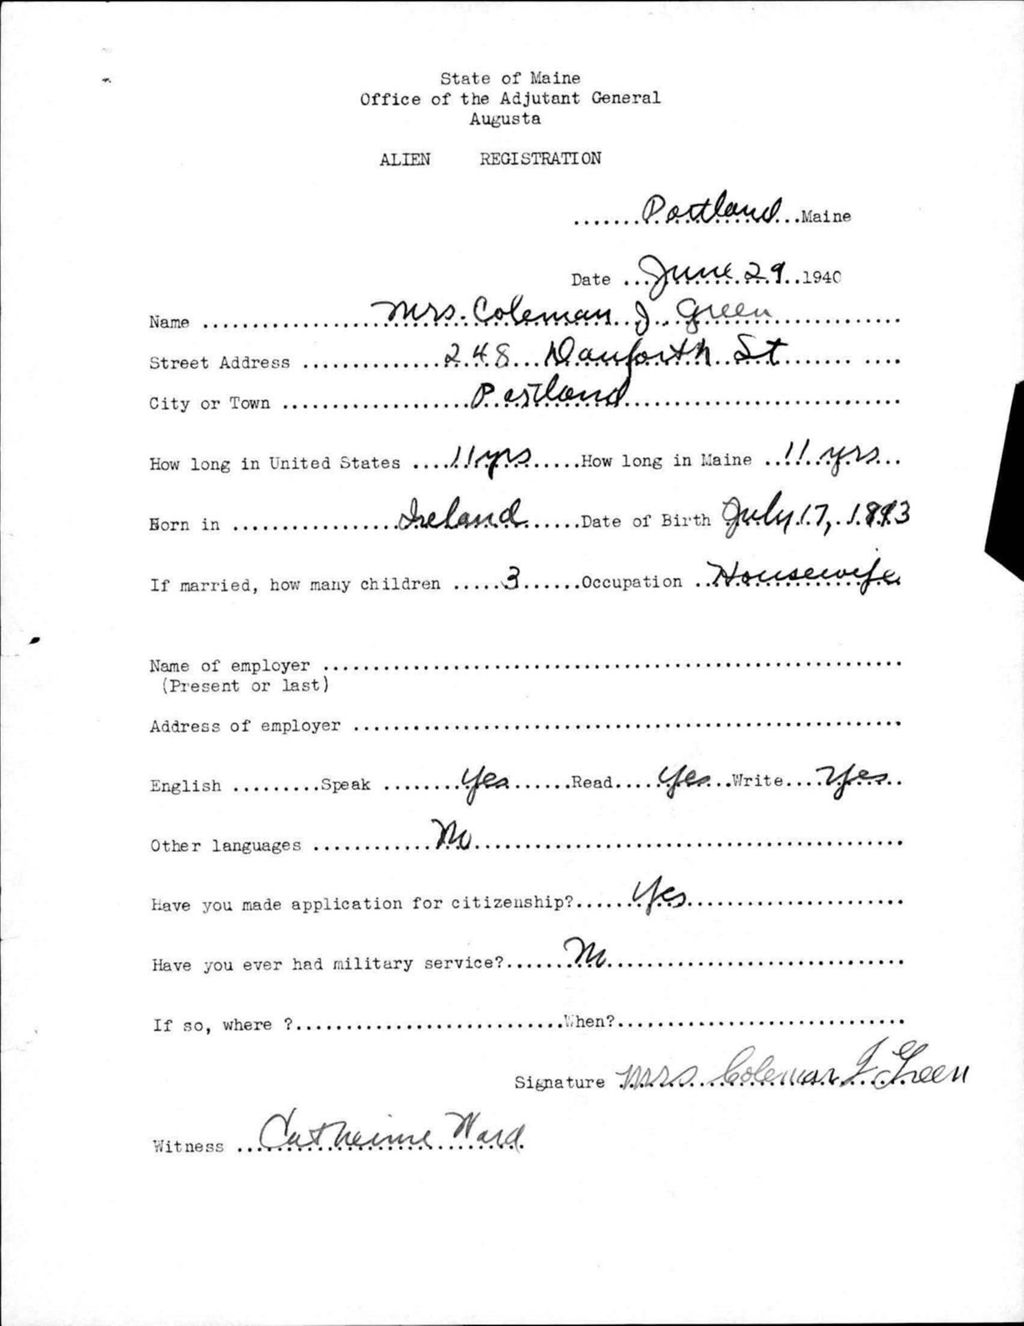 State of Maine
Office of the Adjutant General
Augusta
ALIEN REGISTRATION
.......Portland...Maine
Date ...June.29..1940
Name ..................Mrs. Coleman J. Green.............
Street Address ..............248 Danforth St....... ....
City or Town ...................Portland............................
How long in United States ....11yrs......How long in Maine ..11 yrs...
Born in .................Ireland......Date of Birth July 17, 1893
If married, how many children .....3......Occupation ..Housewife
Name of employer ..........................................................
(Present or last)
Address of employer .......................................................
English .........Speak ........Yes......Read.....Yes...Write....Yes..
Other languages ............No...........................................
Have you made application for citizenship?......Yes......................
Have you ever had military service?......No..............................
If so, where ?...........................When?.............................
Signature Mrs. Coleman J. Green
Witness ..Catherine Ward